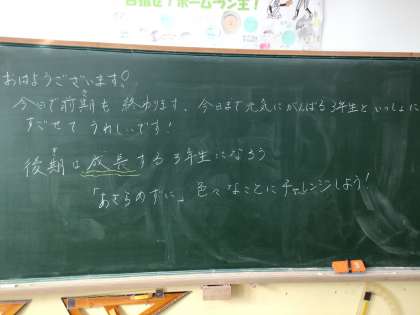 目指せ!ホームラン王!
おはようございます!
今日で前期も終わります。今日まで元気にがんばる3年生といっしょに
すごせてうれしいです!
後期は成長する3年生になろう
「あきらめずに」色々なことにチャレンジしよう!